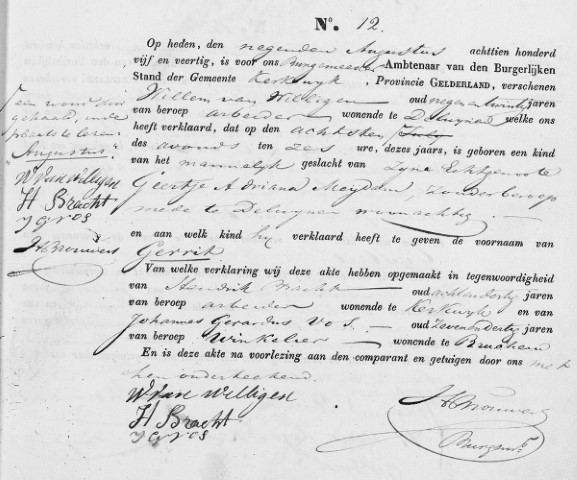 N°. 12.
Op heden, den negenden Augustus achttien honderd
vijf en veertig, is voor ons Burgemeester Ambtenaar van den Burgerlijken
Stand der Gemeente Kerkwyk, Provincie GELDERLAND, verschenen
Willem van Willigen oud negen en twintig jaren
van beroep arbeider wonende te Delwynen welke ons
heeft verklaard, dat op den achtsten July
des avonds ten zes ure, dezes jaars, is geboren een kind
van het mannelyk geslacht van Zyne Echtgenoote
Geertje Adriana Meydam, zonder beroep
mede te Delwynen woonachtig
en aan welk kind hy verklaard heeft te geven de voornaam van
Gerrit
Van welke verklaring wij deze akte hebben opgemaakt in tegenwoordigheid
van Hendrik Bracht oud achtendertig jaren
van beroep arbeider wonende te Kerkwyk en van
Johannes Gerardus Vos oud zevenendertig jaren
van beroep Winkelier wonende te Bruchem
En is deze akte na voorlezing aan den comparant en getuigen door ons met
hen onderteekend.
W van Willigen
H Bracht
J G Vos
HBrouwers
Burgmr.
een woord door
gehaald, in de
plaats te lezen
"Augustus"
W van Willigen
H Bracht
J G Vos
HBrouwers